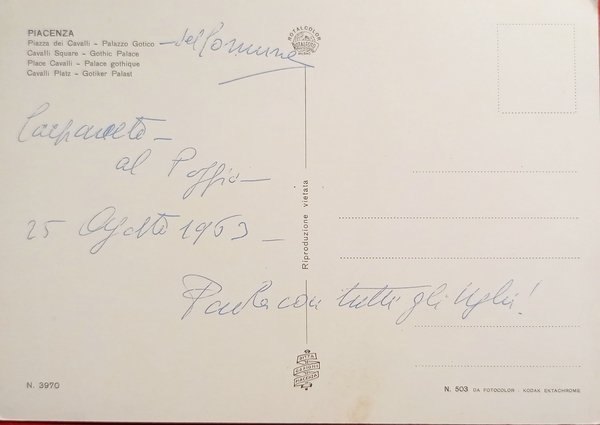 PIACENZA
Piazza dei Cavalli – Palazzo Gotico – del Comune
Cavalli Square – Gothic Palace
Place Cavalli – Palace gothique
Cavalli Platz – Gotiker Palast
ROTALCOLOR
Carpaneto –
al Poggio –
25 Agosto 1963 –
Paola con tutti gli
Riproduzione vietata
PIACENZA
N. 3970
N. 503 DA FOTOCOLOR - KODAK EKTACHROME